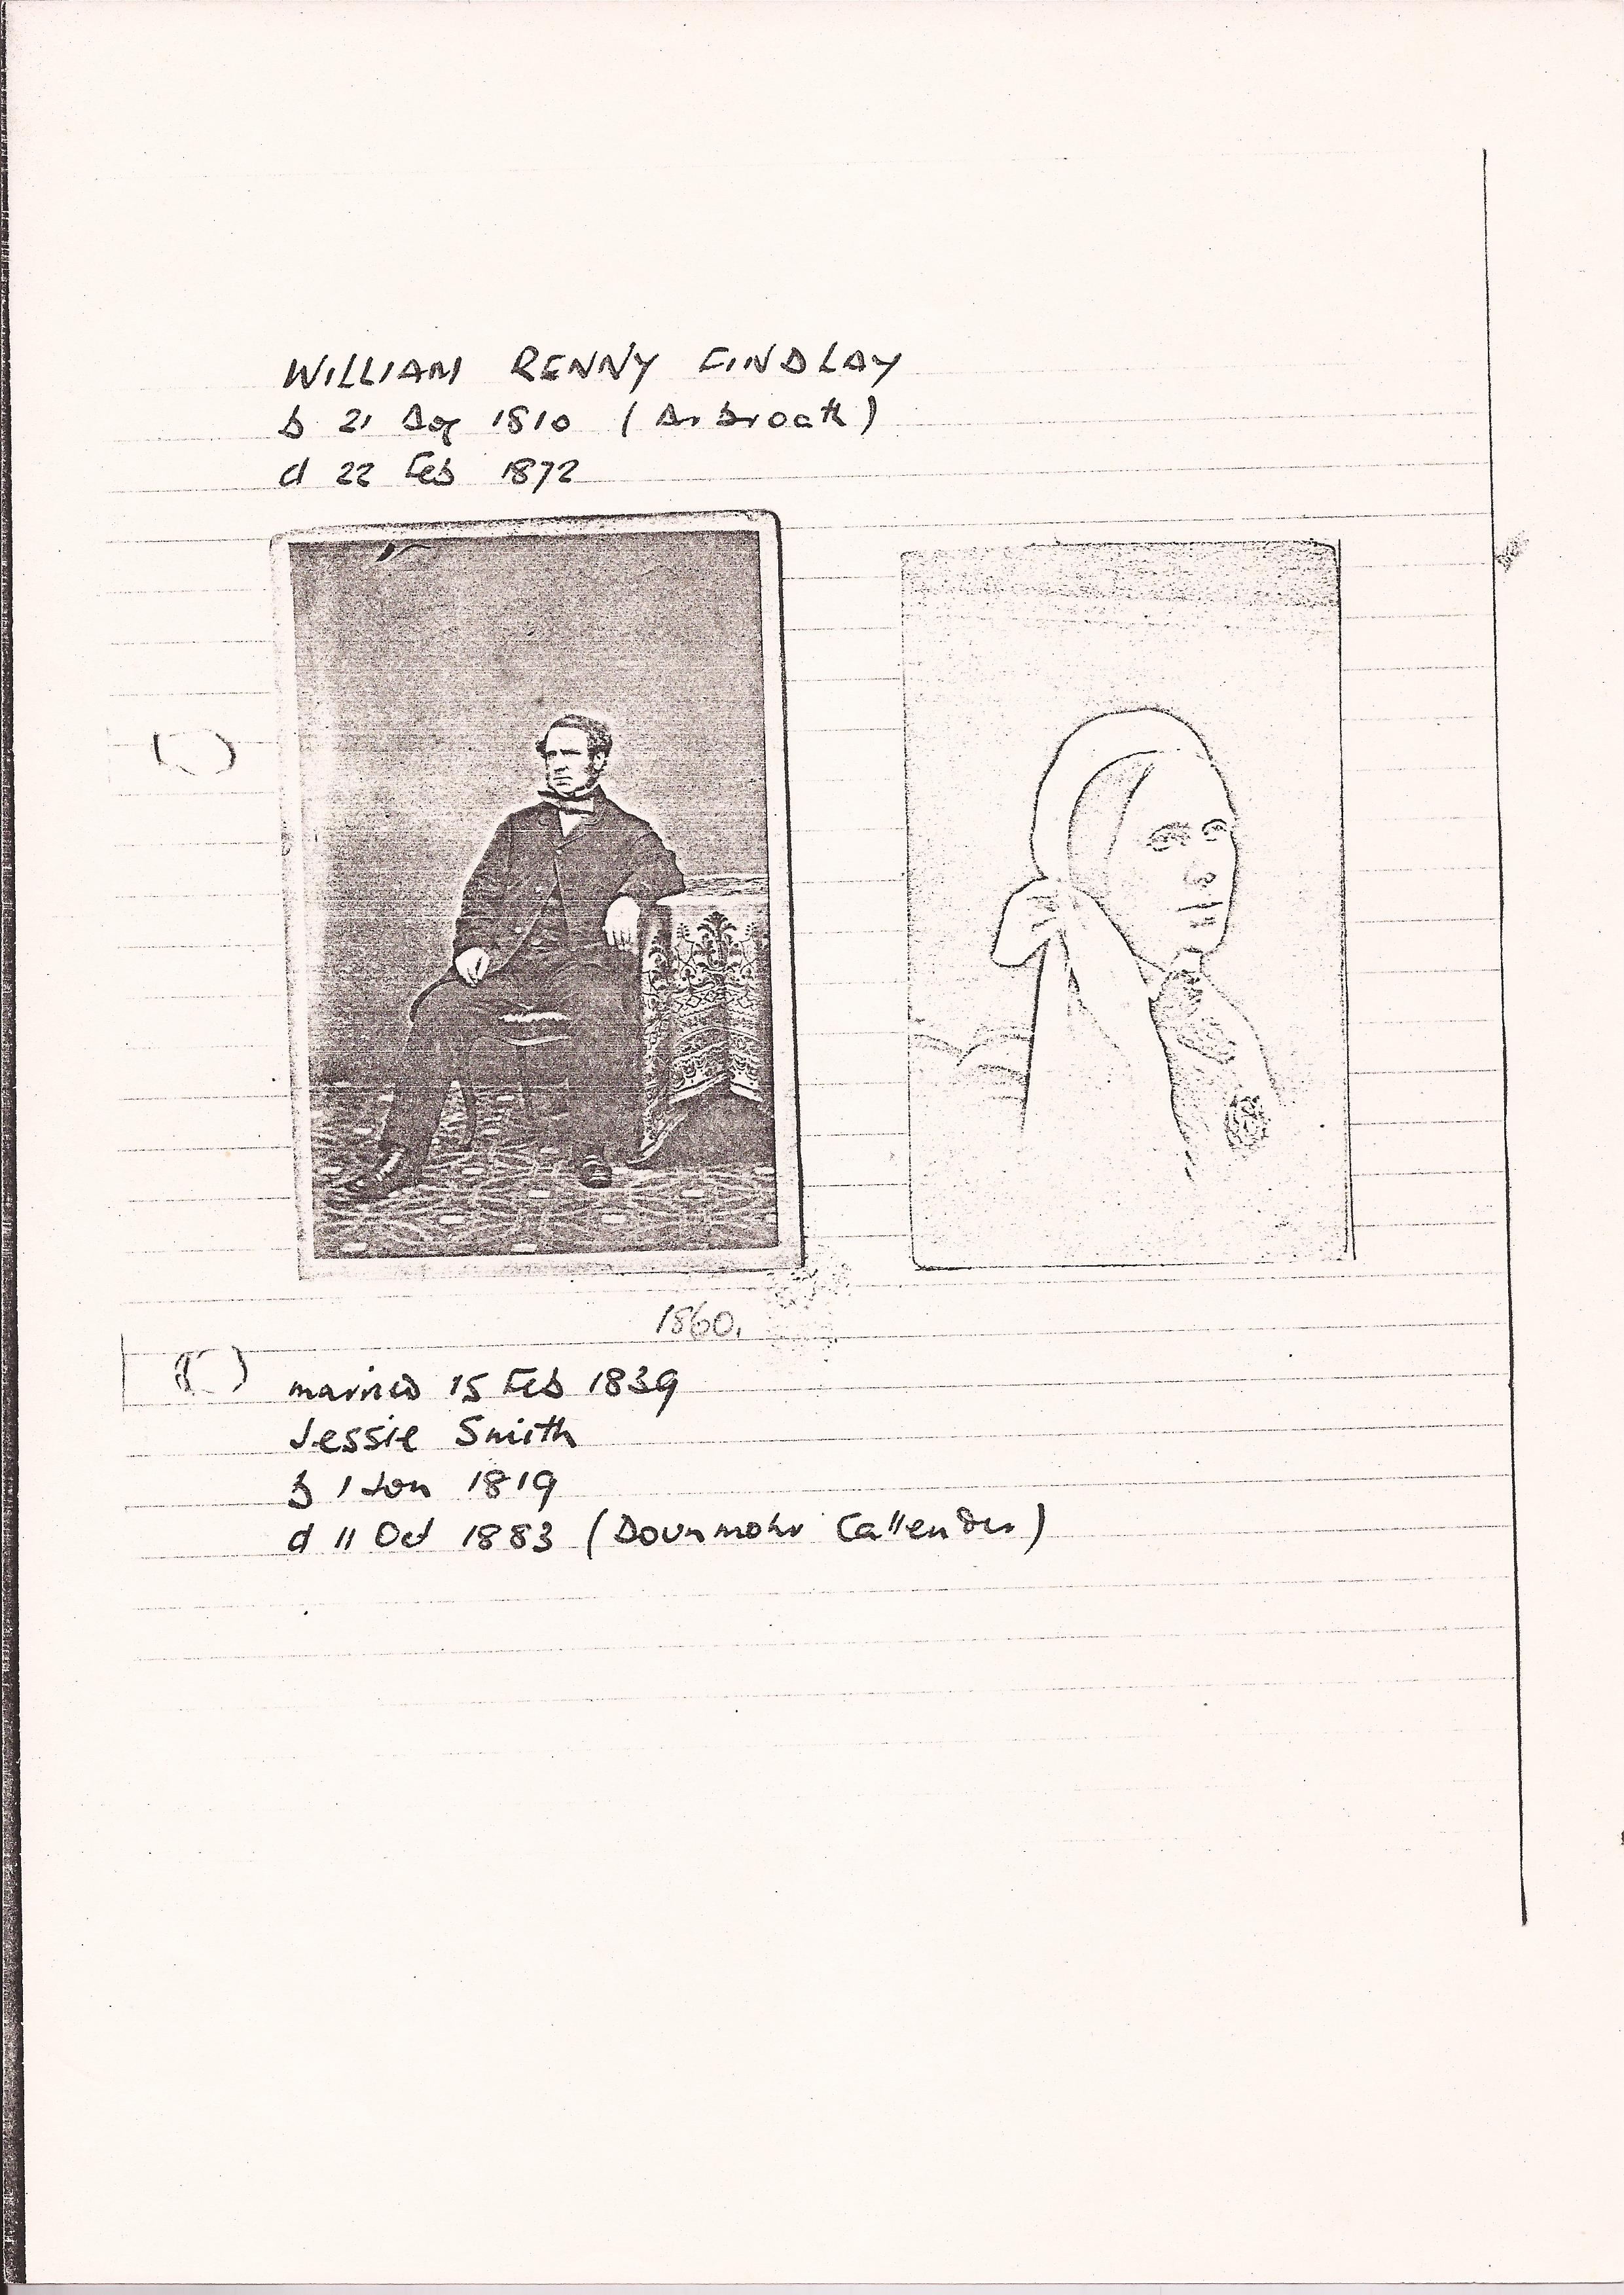 WILLIAM RENNY FINDLAY
b 21 Aug 1810 (Arbroath)
d 22 Feb 1872
1860.
married 15 Feb 1839
Jessie Smith
b 1 Jan 1819
d 11 Oct 1883 (Dounmohr Callender)